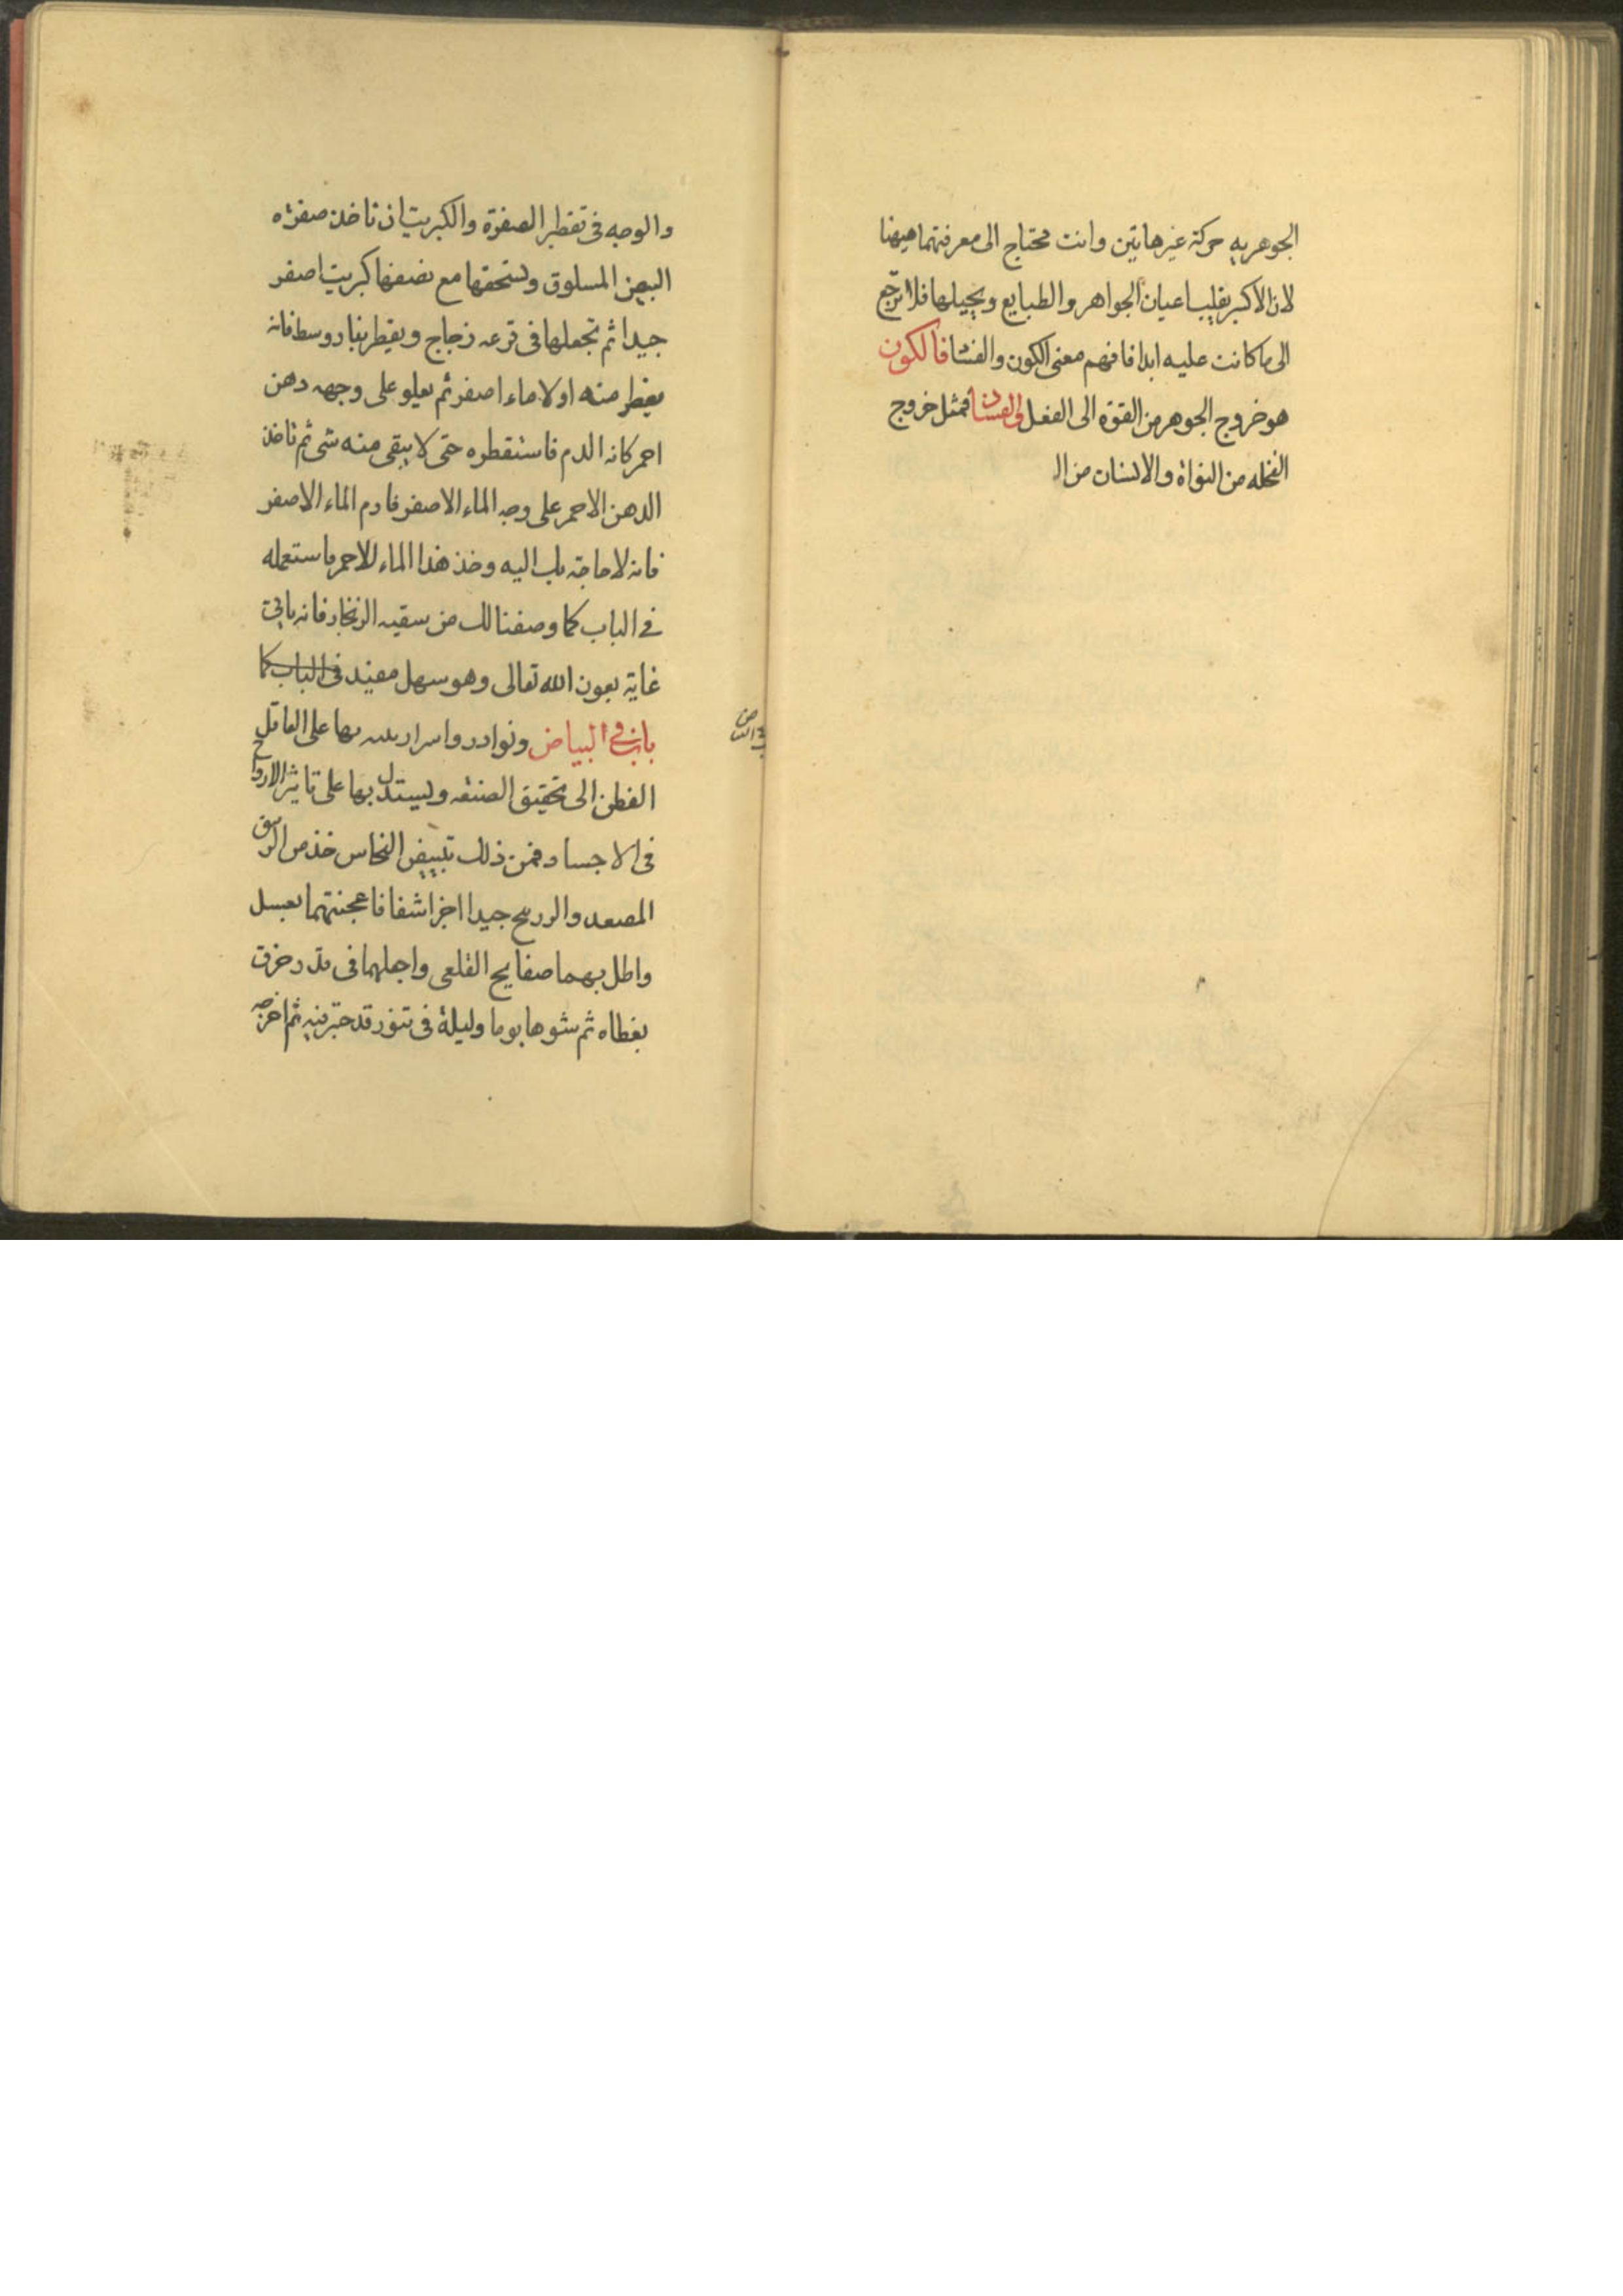 الجوهريه حركة غير هاتين وانت محتاج الى معرفتهما هيهنا
لان الاكبر يقلب اعيان الجواهر والطبايع ويحيلها فلا ترجع
الى ما كانت عليه ابدا فافهم معنى الكون والفساد فالكون
هو خروج الجوهر من القوة الى الفعل فمثل خروج
النخله من النواة والانسان من ال
والوجه فى تقطير الصفرة والكبريت ان تاخذ صفرة
البيض المسلوق وتسحقها مع نصفها كبريت اصفر
جيدا ثم تجعلها فى قرعه زجاج ويقطر بنار وسط فانه
يقطر منه اولا ماء اصفر ثم يعلو على وجهه دهن
احمر كانه الدم فاستقطره حتى لا يبقى منه شى ثم تاخذ
الدهن الاحمر على وجه الماء الاصفر فارم الماء الاصفر
فانه لا حاجة بك اليه وخذ هذا الماء الاحمر فاستعمله
فى الباب كما وصفنا لك من سقيه الزنجار فانه ياتى
غاية بعون الله تعالى وهو سهل مفيد فى الباب كما
باب فى البياض ونوادر واسرار بها على العاقل
الفطن الى تحقيق الصنعه وليستدل بها على تاثير الارواح
فى الاجساد فمن ذلك تبييض النحاس خذ من الزيبق
المصعد والزرنيخ جيدا اعجنتهما بعسل
واطل بهما صفايح القلعى واجلهما فى قدر خزف
بغطاه ثم شوها يوما وليلة فى تنور قد خبز فيه ثم اخرجه